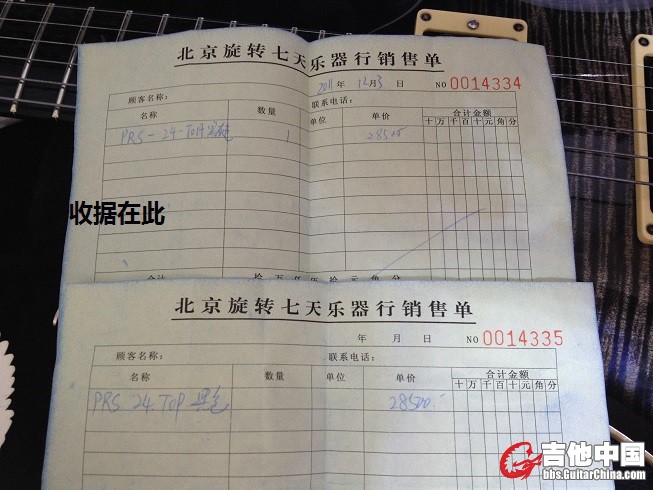 北京旋转七天乐器行销售单
2011年 12月3日 NO 0014334
顾客名称： 联系电话：
名称 数量 单位 单价 合计金额
十 万 千 百 十 元 角 分
PRS-24-TOP黑色 1 28500
收据在此
合计 拾 万 仟 佰 拾 元 角 分
北京旋转七天乐器行销售单
年 月 日 NO 0014335
顾客名称： 联系电话：
名称 数量 单位 单价 合计金额
十 万 千 百 十 元 角 分
PRS 24.TOP 黑色 28500.
吉他中国
bbs.GuitarChina.com